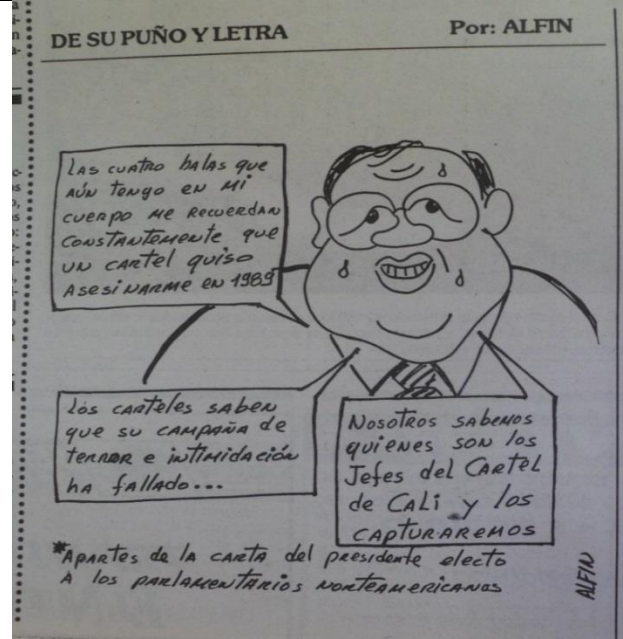 DE SU PUÑO Y LETRA
Por: ALFIN
LAS CUATRO BALAS QUE
AÚN TENGO EN MI
CUERPO ME RECUERDAN
CONSTANTEMENTE QUE
UN CARTEL QUISO
ASESINARME EN 1989
LOS CARTELES SABEN
QUE SU CAMPAÑA DE
TERROR E INTIMIDACIÓN
HA FALLADO...
NOSOTROS SABEMOS
QUIENES SON LOS
JEFES DEL CARTEL
DE CALI Y LOS
CAPTURAREMOS
*APARTES DE LA CARTA DEL PRESIDENTE ELECTO
A LOS PARLAMENTARIOS NORTEAMERICANOS
ALFIN